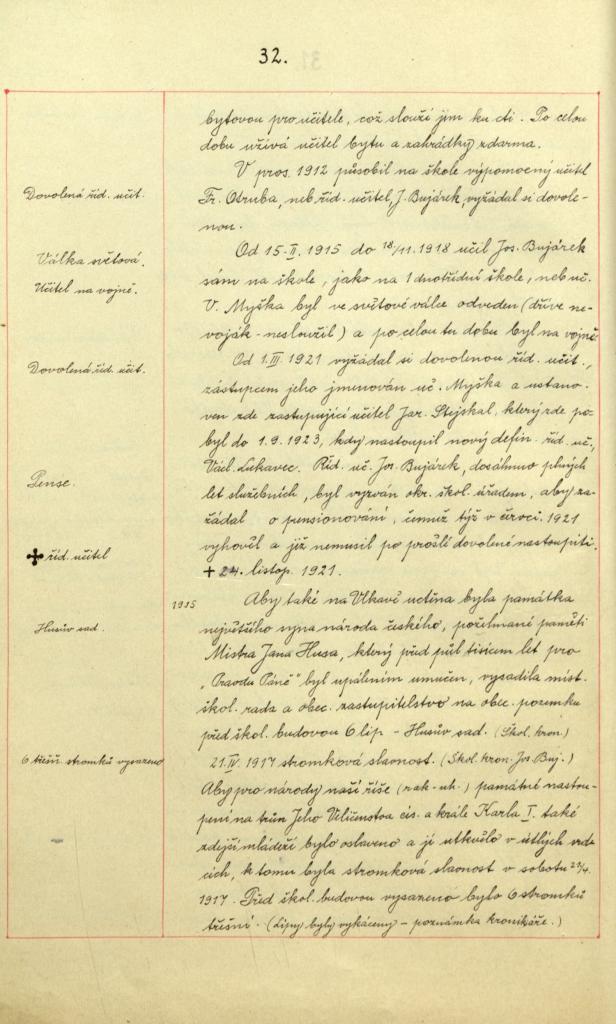 32.
bytovou pro učitele, což slouží jim ku cti. Po celou
dobu užívá učitel bytu a zahrádky zdarma.
V pros. 1912 působil na škole výpomocný učitel
Dovolená říd. učit.
Fr. Otruba, neb říd. učitel, J. Bujárek, vyžádal si dovole-
nou.
Od 15-II. 1915 do 18/11. 1918 učil Jos. Bujárek
Válka světová.
sám na škole, jako na 1 dnotřídní škole, neb uč.
Učitel na vojně.
V. Myška byl ve světové válce odveden (dříve ne-
voják - nesloužil) a po celou tu dobu byl na vojně.
Od 1.III. 1921 vyžádal si dovolenou říd. učit.,
Dovolená říd. uč.
zástupcem jeho jmenován uč. Myška a ustano-
ven zde zastupující učitel Jar. Stejskal, který zde po-
byl do 1.9.1923, kdy nastoupil nový defin. říd. uč.,
Václ. Lukavec. Říd. uč. Jos. Bujárek, dosáhnuv plných
Pense.
let služebních, byl vyzván okr. škol. úřadem, aby za-
žádal o pensionování, čemuž týž v únoru 1921
vyhověl a již nemusil po prošlé dovolené nastoupiti.
✠ říd. učitel
+ 24. listop. 1921.
1915
Aby také na Vlkavě uctěna byla památka
Husův sad.
největšího syna národa českého, požehnané paměti
Mistra Jana Husa, který před půl tisícem let pro
"Pravdu Páně" byl upálením umučen, vysadila míst.
škol. rada a obec. zastupitelstvo na obec. pozemku
před škol. budovou 6 lip - Husův sad. (Škol. kron.)
6 třešň. stromků vysazeno
21.IV. 1917 stromková slavnost. (Škol. kron. Jos. Buj.)
Aby pro národy naší říše (rak.-uh.) památné nastou-
pení na trůn Jeho Veličenstva cís. a krále Karla I. také
zdejší mládeží bylo oslaveno a jí utkvělo v útlých srd-
cích, k tomu byla stromková slavnost v sobotu 21/4.
1917. Před škol. budovou vysazeno bylo 6 stromků
třešní. (Lípy byly vykáceny - poznámka kronikáře.)